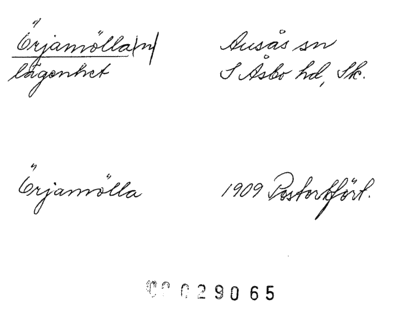 Örjamölla/n/ Ausås sn
lägenhet S Åsbo hd, Sk.
Örjamölla 1909 Postortfört.
029065